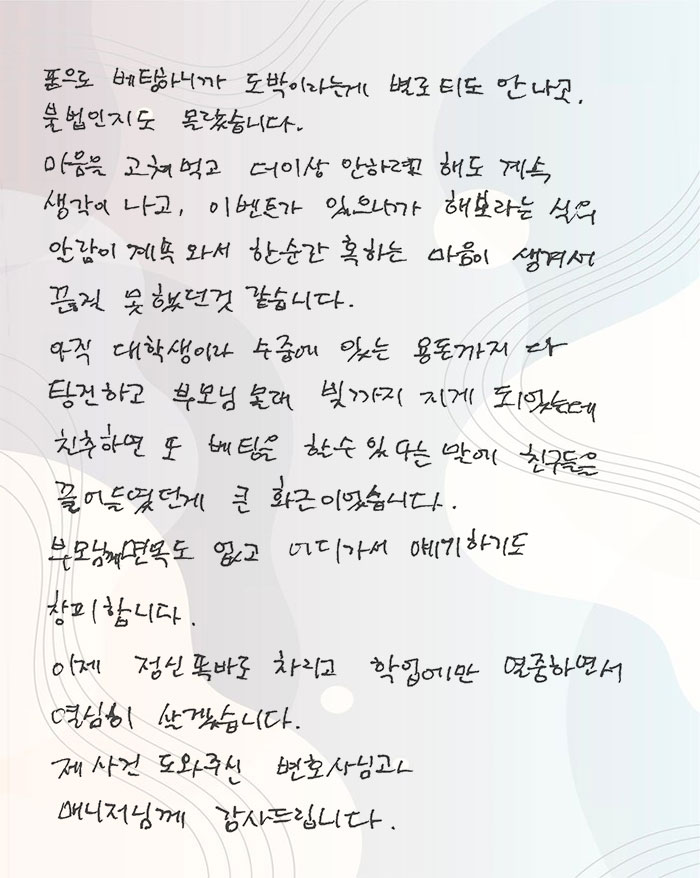 폼으로 베팅하니까 도박이라는게 별로 티도 안 나고,
불법인지도 몰랐습니다.
마음을 고쳐먹고 더이상 안하려고 해도 계속
생각이 나고, 이벤트가 있으니까 해보라는 식의
알람이 계속 와서 한순간 혹하는 마음이 생겨서
끊질 못했던것 같습니다.
아직 대학생이라 수중에 있는 용돈까지 다
탕진하고 부모님 몰래 빚까지 지게 되었는데
친추하면 또 베팅을 할수 있다는 말에 친구들을
끌어들였던게 큰 화근이었습니다.
부모님께 면목도 없고 어디가서 얘기하기도
창피합니다.
이제 정신 똑바로 차리고 학업에만 열중하면서
열심히 살겠습니다.
제 사건 도와주신 변호사님과
매니저님께 감사드립니다.